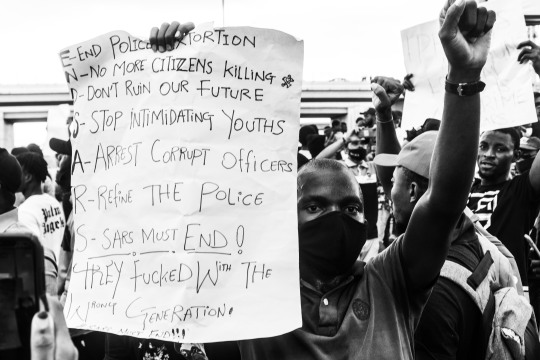 E-END POLICE EXTORTION
N-NO MORE CITIZENS KILLING
D-DON'T RUIN OUR FUTURE
S-STOP INTIMIDATING YOUTHS
A-ARREST CORRUPT OFFICERS
R-REFINE THE POLICE
S-SARS MUST END!
THEY FUCKED WITH THE
WRONG GENERATION!
MUST END!!!
Palm
Angels